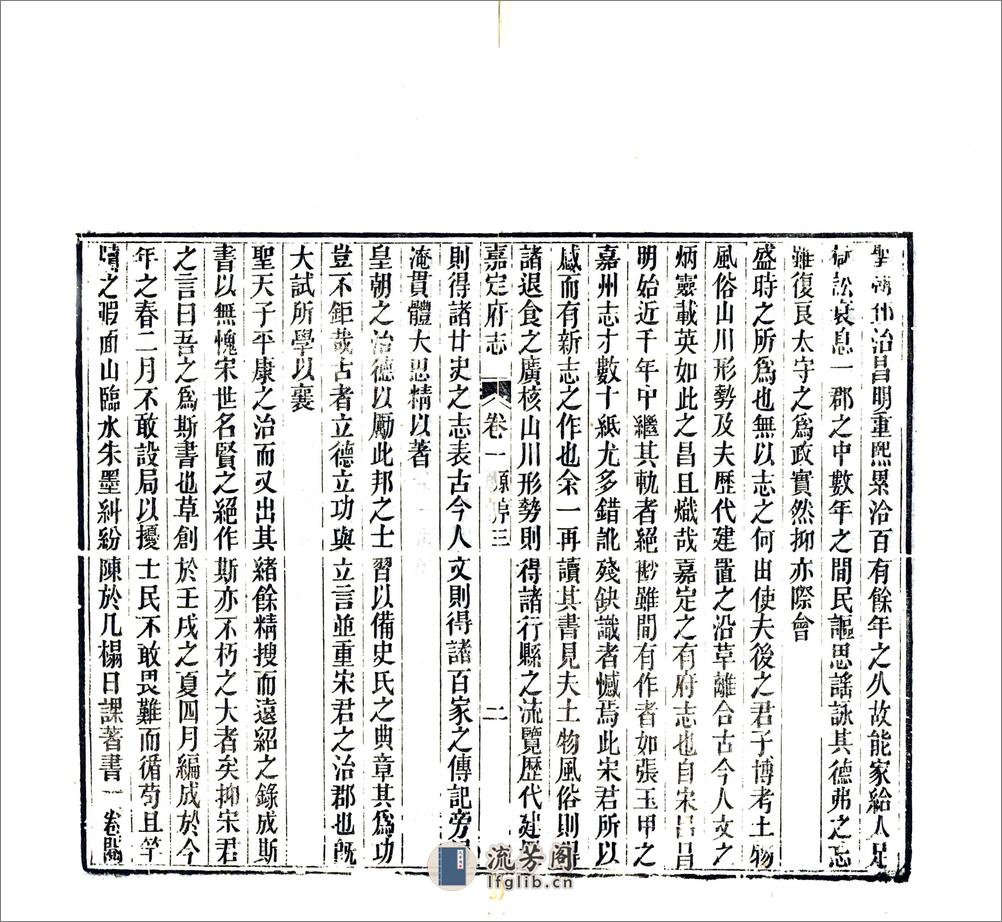 聖朝郅治昌明重熙累洽百有餘年之久故能家給人足
獄訟衰息一郡之中數年之間民謳思謠詠其德弗之忘
雖復良太守之為政實然抑亦際會
盛時之所為也無以志之何由使夫後之君子博考土物
風俗山川形勢及夫歷代建置之沿革離合古今人文之
炳靈載英如此之昌且熾哉嘉定之有府志也自宋呂昌
明始近千年中繼其軌者絕尠雖間有作者如張玉甲之
嘉州志才數十紙尤多錯訛殘缺識者憾焉此宋君所以
慼而有新志之作也余一再讀其書見夫土物風俗則得
諸退食之廣核山川形勢則得諸行縣之流覽歷代建
嘉定府志 卷一 原序三 二
則得諸廿史之志表古今人文則得諸百家之傳記旁
淹貫體大思精以著
皇朝之治德以勵此邦之士習以備史氏之典章其為功
豈不鉅哉古者立德立功與立言並重宋君之治郡也既
大試所學以襄
聖天子平康之治而又出其緒餘精搜而遠紹之錄成斯
書以無愧宋世名賢之絕作斯亦不朽之大者矣抑宋君
之言曰吾之為斯書也草創於壬戌之夏四月編成於今
年之春二月不敢設局以擾士民不敢畏難而循苟且竿
牘之暇面山臨水朱墨糾紛陳於几榻日課著書一卷
流芳閣
lfglib.cn